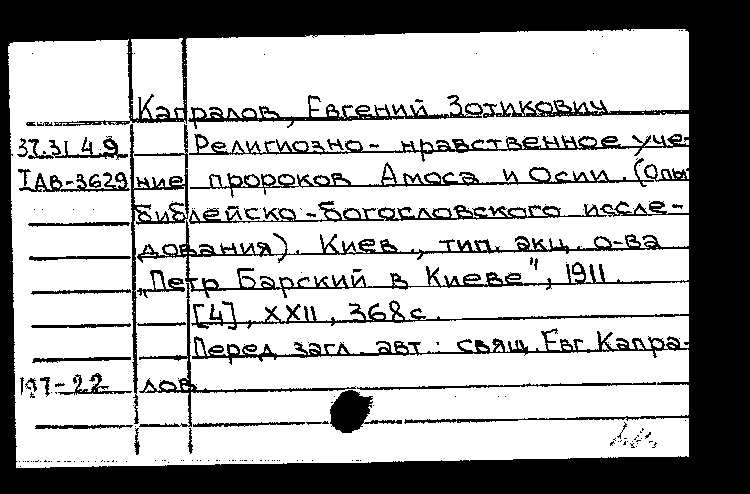 Капралов, Евгений Зотикович
37.31.4.9 Религиозно-нравственное уче-
IАВ-3629 ние пророков Амоса и Осии. (Опыт
библейско-богословского иссле-
дования). Киев., тип. акц. о-ва
„Петр Барский в Киеве", 1911.
[4], XXII, 368с.
Перед загл. авт.: свящ. Евг. Капра-
197-22 лов.